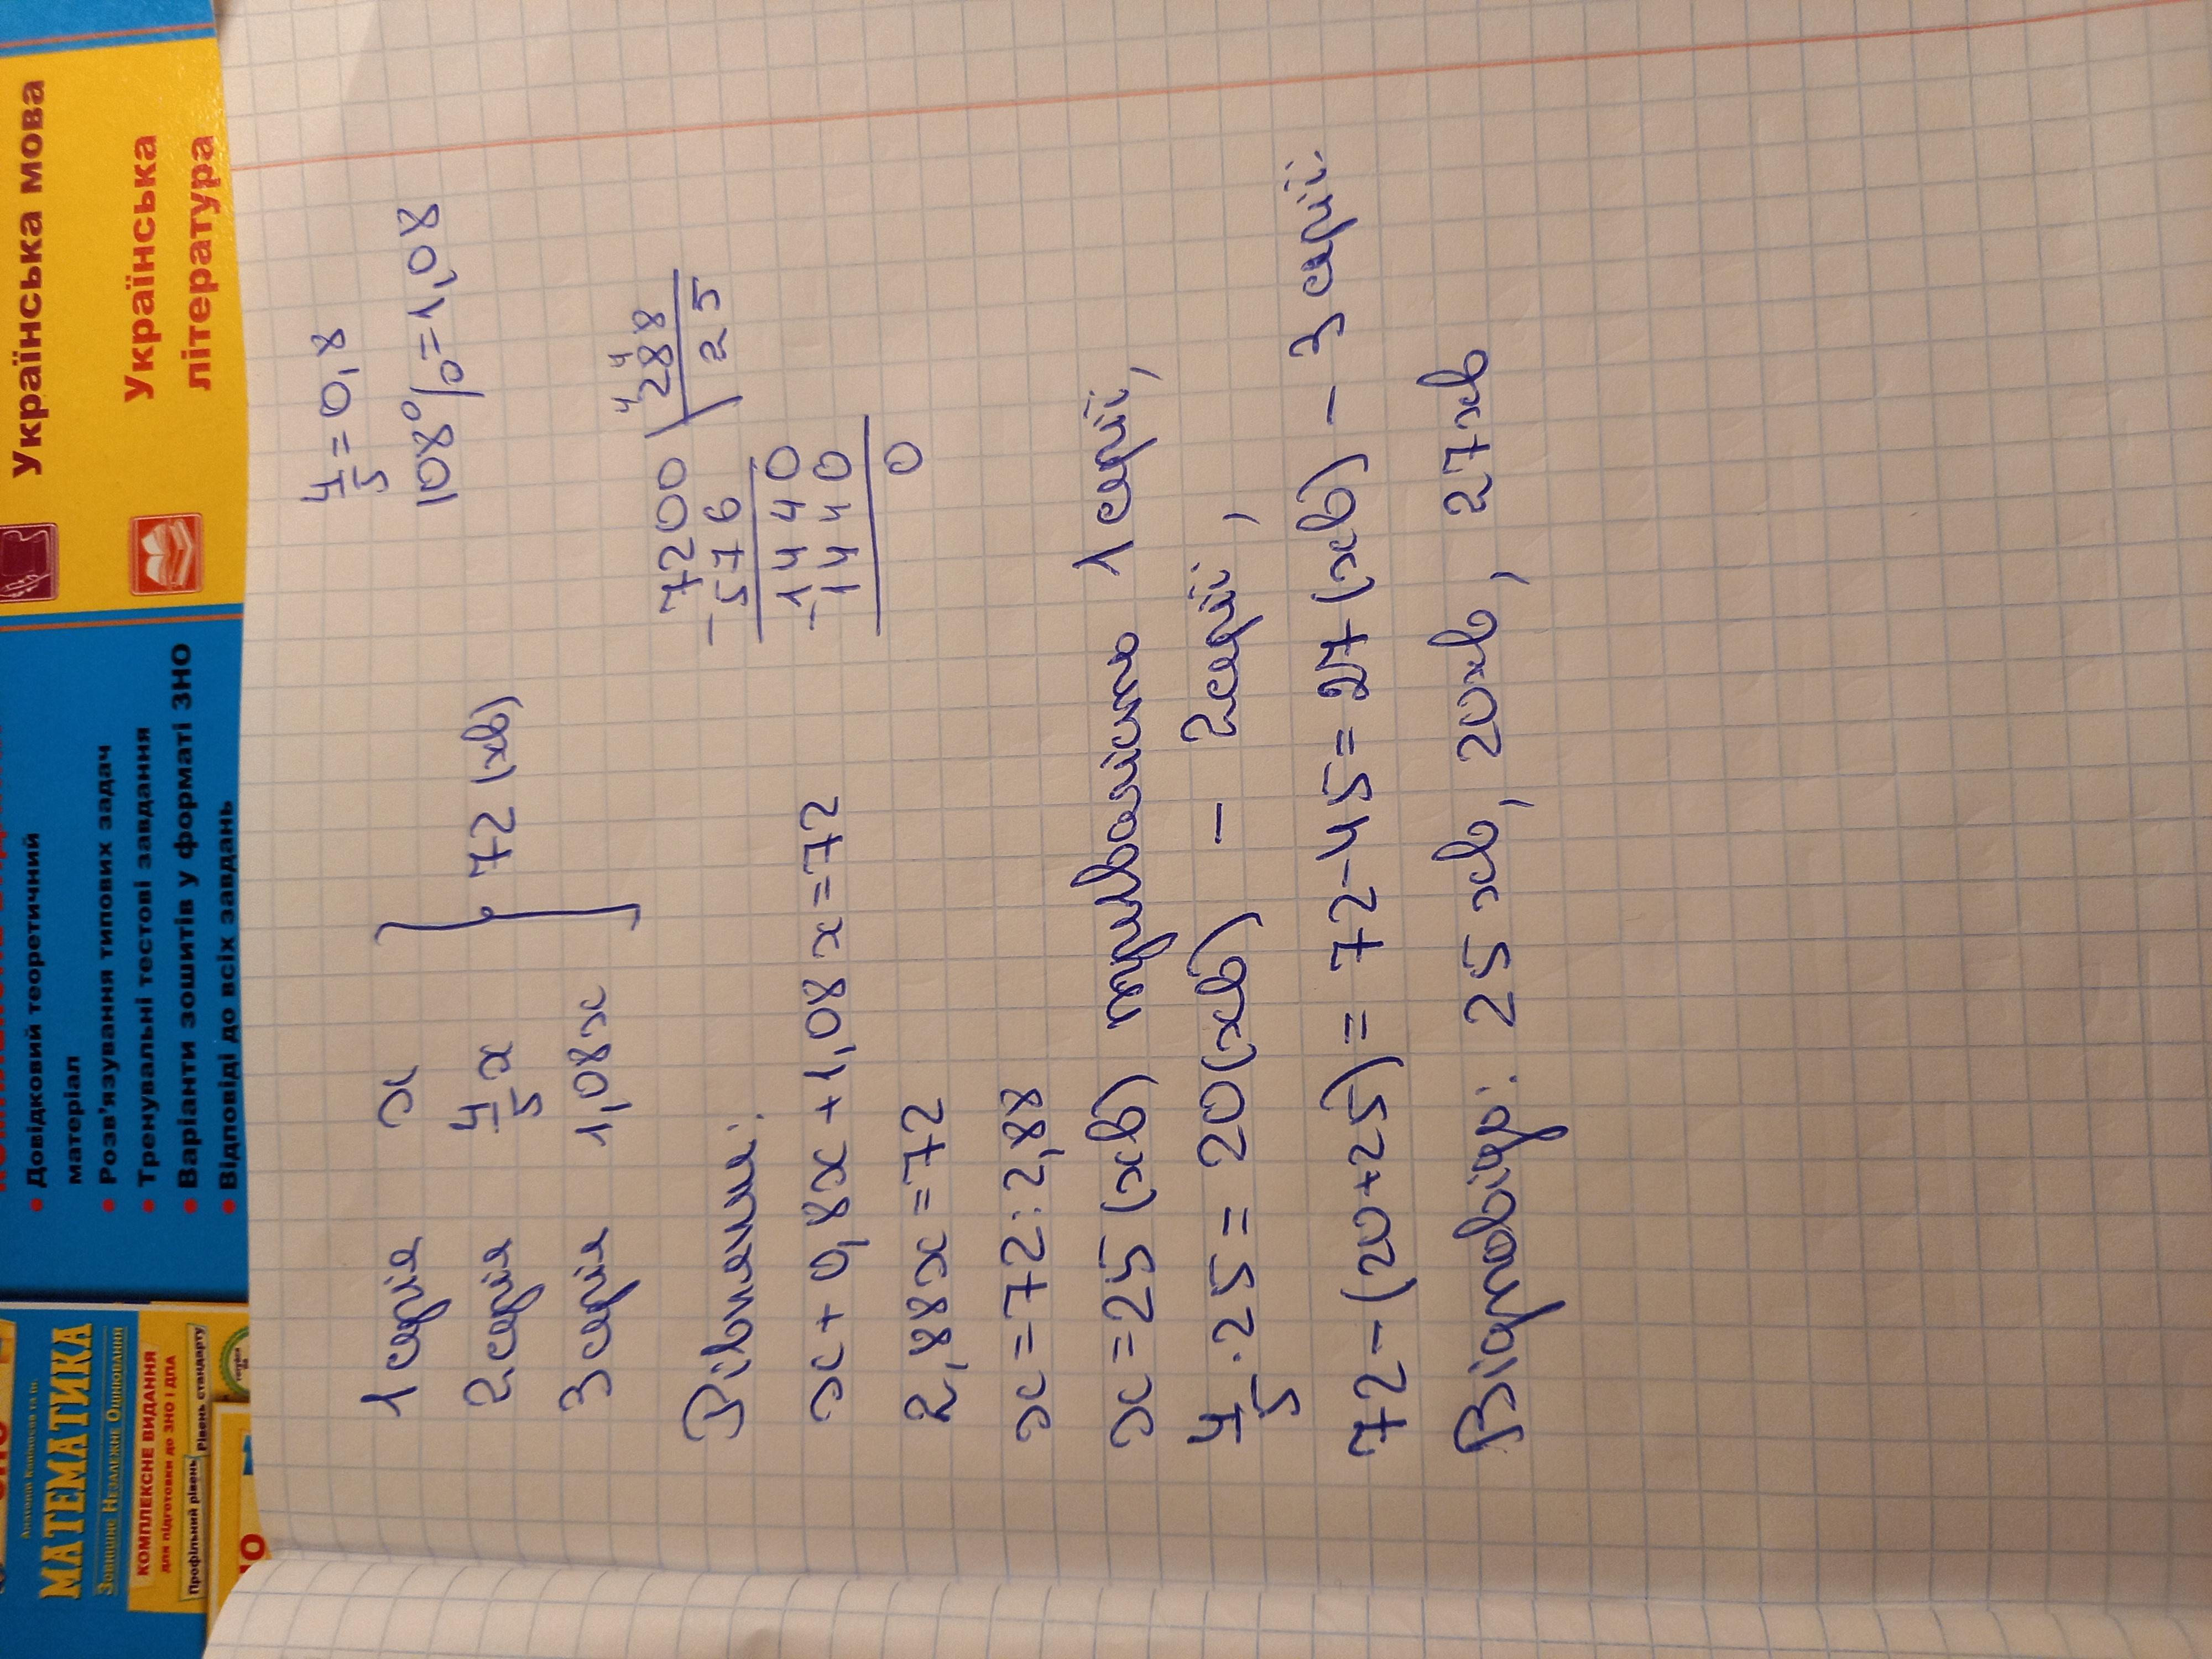 Українська мова
Українська
література
Довідковий теоретичний
матеріал
Розв'язування типових задач
Тренувальні тестові завдання
Варіанти зошитів у форматі ЗНО
Відповіді до всіх завдань
МАТЕМАТИКА
Зовнішнє Незалежне Оцінювання
КОМПЛЕКСНЕ ВИДАННЯ
для підготовки до ЗНО і ДПА
Профільний рівень Рівень стандарту
1 серія x
2 серія 4/5 x } 72 (хв)
3 серія 1,08x
4/5 = 0,8
108% = 1,08
Рівняння:
x + 0,8x + 1,08x = 72
2,88x = 72
x = 72 : 2,88
x = 25 (хв) тривалістю 1 серії,
4/5 · 25 = 20 (хв) – 2 серії,
72 – (20+25) = 72 – 45 = 27 (хв) – 3 серії.
Відповідь: 25 хв, 20 хв, 27 хв
4 4
7200 | 288
– 576 | 25
1440
– 1440
0